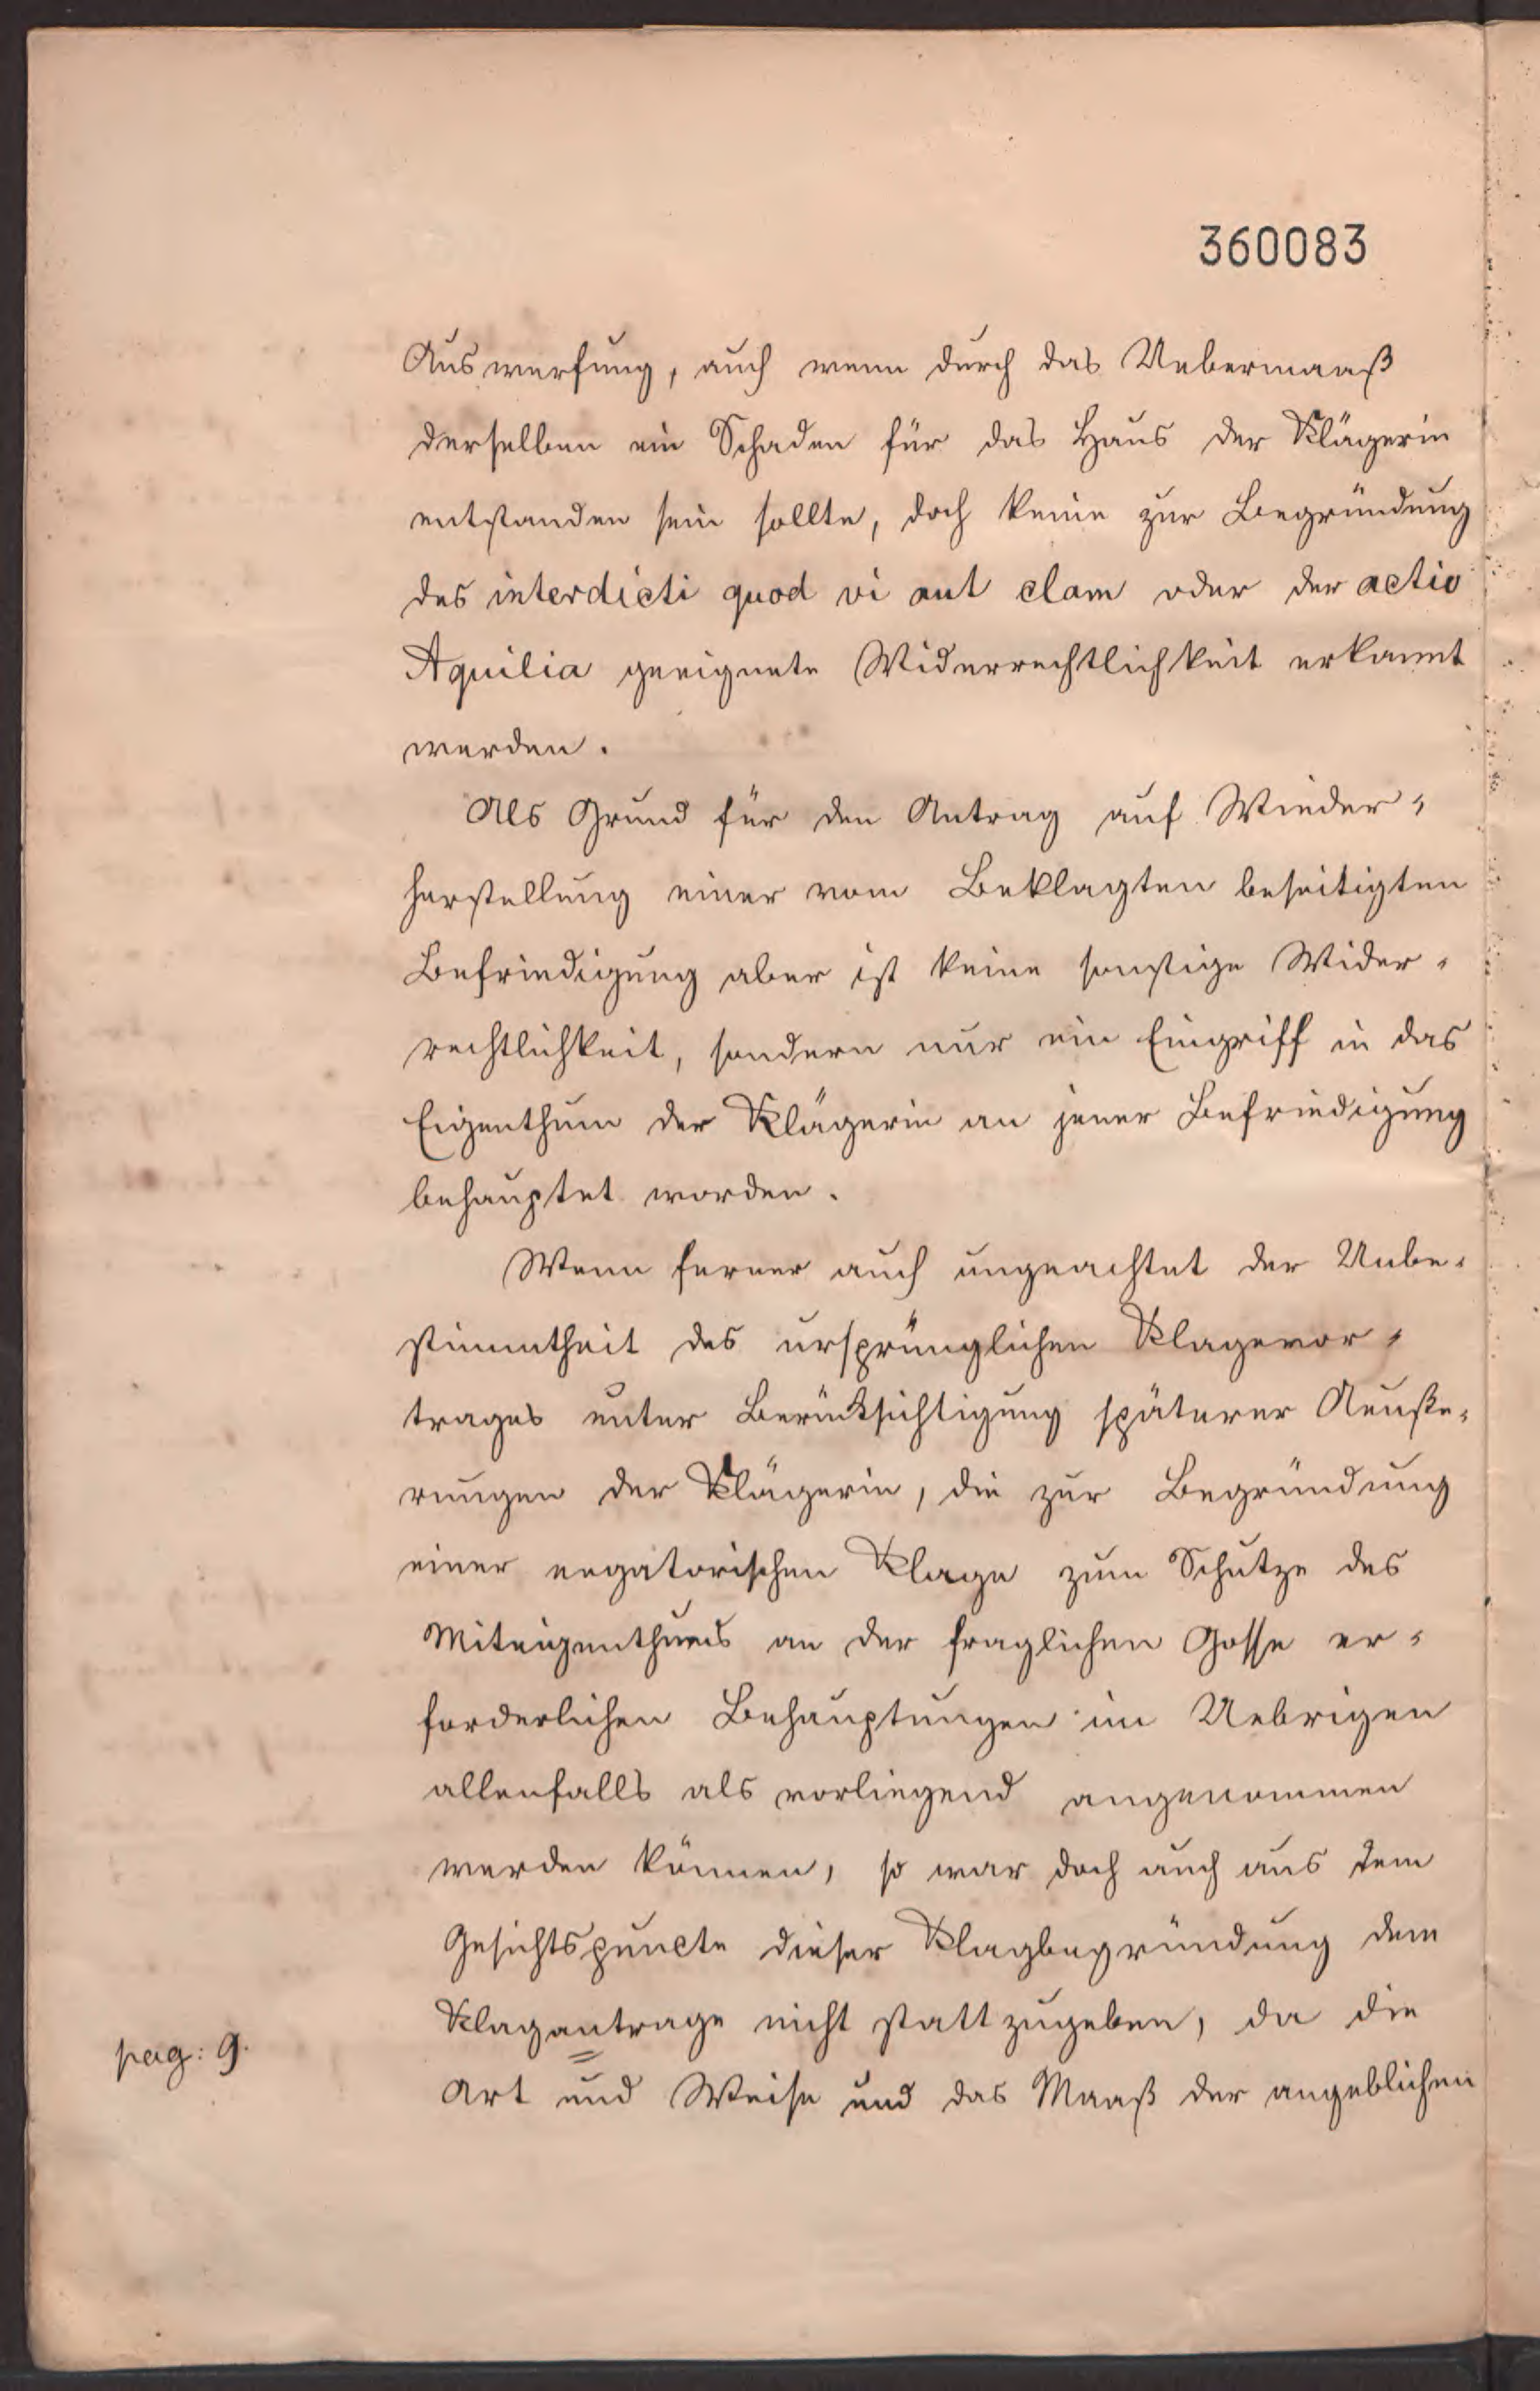 360083
Auswerfung, auch wenn durch das Uebermaaß
derselben ein Schaden für das Haus der Klägerin
entstanden sein sollte, doch keine zur Begründung
des interdicti quod vi aut clam oder der actio
Aquilia geeignete Widerrechtlichkeit erkannt
werden.
Als Grund für den Antrag auf Wieder-
herstellung einer vom Beklagten beseitigten
Befriedigung aber ist keine sonstige Wider-
rechtlichkeit, sondern nur ein Eingriff in das
Eigenthum der Klägerin an jener Befriedigung
behauptet worden.
Wenn ferner auch ungeachtet der Unbe-
stimmtheit des ursprünglichen Klagevor-
trages unter Berücksichtigung späterer Aeuße-
rungen der Klägerin, die zur Begründung
einer negatorischen Klage zum Schutze des
Miteigenthums an der fraglichen Gosse er-
forderlichen Behauptungen im Uebrigen
allenfalls als vorliegend angenommen
werden können, so war doch auch aus dem
Gesichtspuncte dieser Klagbegründung dem
Klagantrage nicht stattzugeben, da die
pag: 9.
Art und Weise und das Maaß der angeblichen